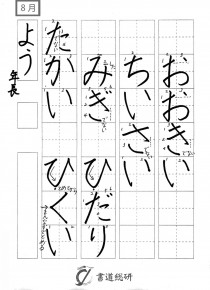 8月
おおきい
ちいさい
みぎ ひだり
たかい ひくい
よう
年長
書道総研